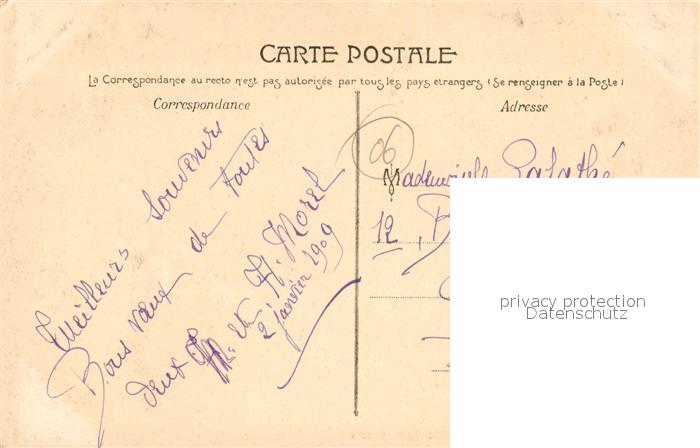 CARTE POSTALE
La Correspondance au recto n'est pas autorisée par tous les pays étrangers (Se renseigner à la Poste)
Correspondance
Adresse
Meilleurs Souvenirs
Bons vœux de toutes
deux
M. et H. Morel
2 janvier 1909
06
Mademoiselle
12, B
privacy protection
Datenschutz